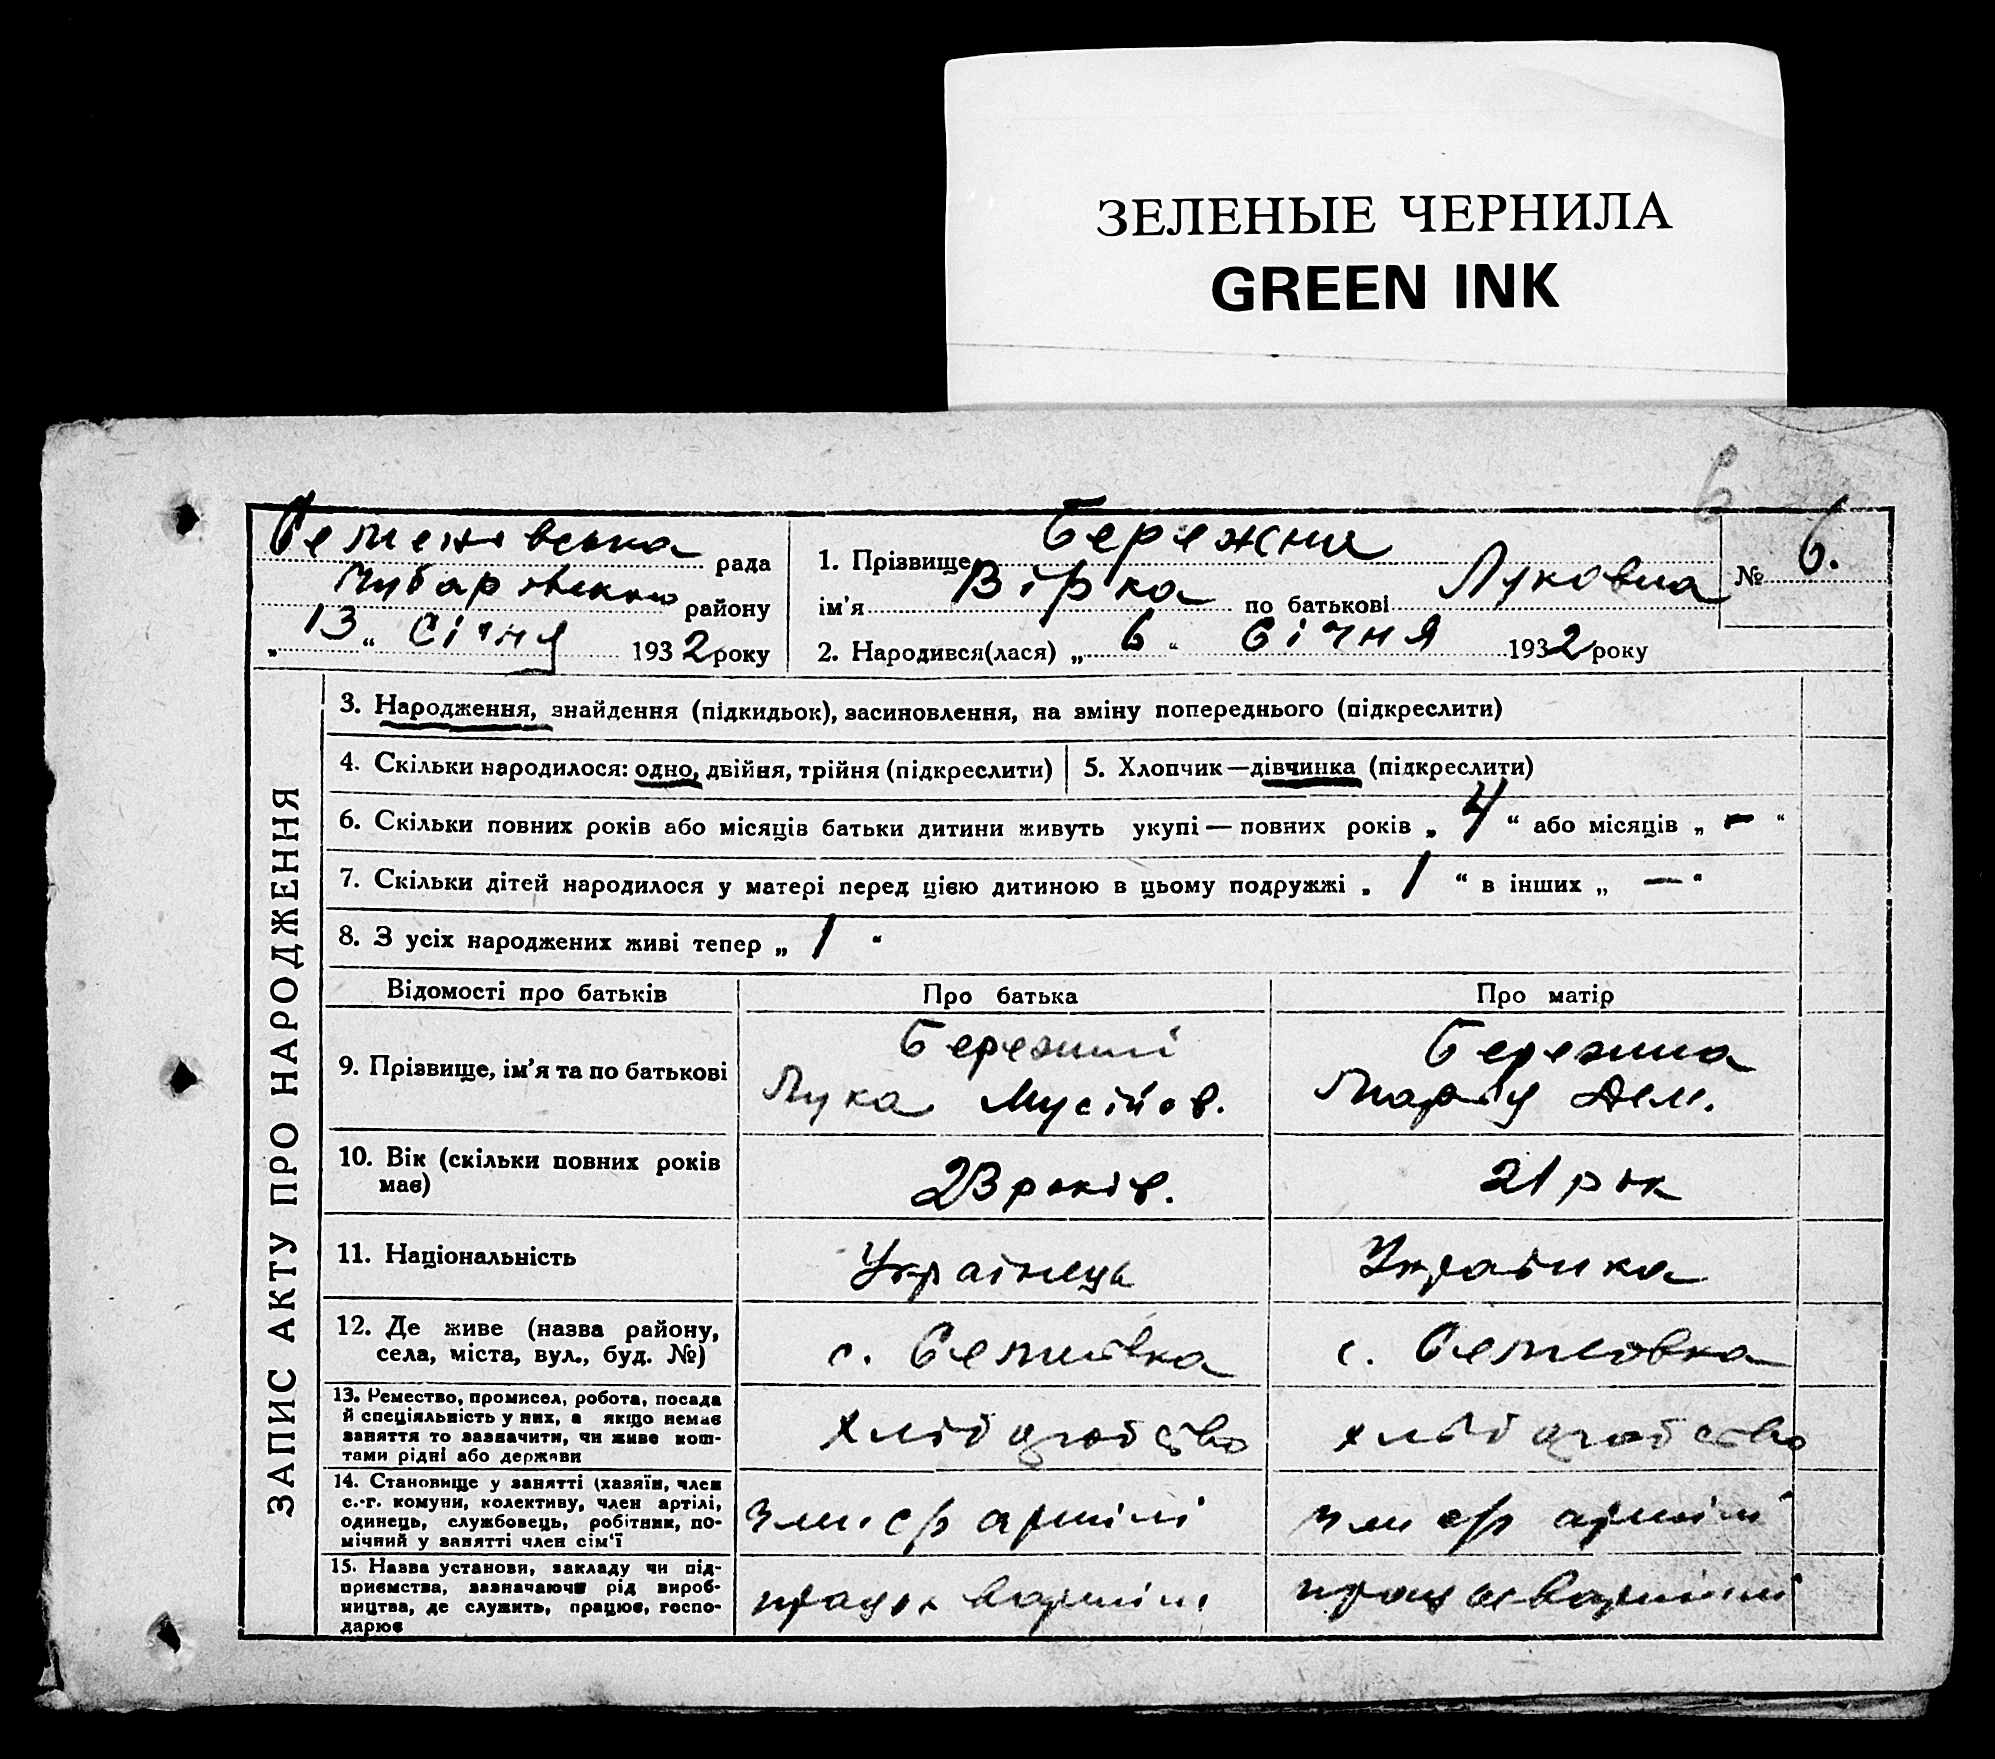 ЗЕЛЕНЫЕ ЧЕРНИЛА
GREEN INK
6
Семенівська рада
Чубарівського району
„ 13 “ Січня 1932 року
1. Прізвище Бережня
ім'я Вірка по батькові Луковна
2. Народився(лася) „ 6 “ Січня 1932 року
№ 6.
ЗАПИС АКТУ ПРО НАРОДЖЕННЯ
3. Народження, знайдення (підкидьок), засиновлення, на зміну попереднього (підкреслити)
4. Скільки народилося: одно, двійня, трійня (підкреслити)
5. Хлопчик—дівчинка (підкреслити)
6. Скільки повних років або місяців батьки дитини живуть укупі — повних років „ 4 “ або місяців „ — “
7. Скільки дітей народилося у матері перед цією дитиною в цьому подружжі „ 1 “ в інших „ — “
8. З усіх народжених живі тепер „ 1 “
Відомості про батьків
Про батька
Про матір
9. Прізвище, ім'я та по батькові
Бережний
Лука Мусійов.
Бережна
Марія Дем.
10. Вік (скільки повних років
має)
23 років.
21 рік
11. Національність
Українець
Українка
12. Де живе (назва району,
села, міста, вул., буд. №)
с. Семенівка
с. Семеновка
13. Ремество, промисел, робота, посада
й спеціяльність у них, а якщо немає
заняття то зазначити, чи живе кош-
тами рідні або держави
хлібороб ство
хлібороб ство
14. Становище у занятті (хазяїн, член
с.-г. комуни, колективу, член артілі,
одинець, службовець, робітник, по-
мічний у занятті член сім'ї
член с/г артілі
член с/г артілі
15. Назва установи, закладу чи під-
приємства, зазначаючи рід вироб-
ництва, де служить, працює, госпо-
дарює
працює в артілі
працює в артілі